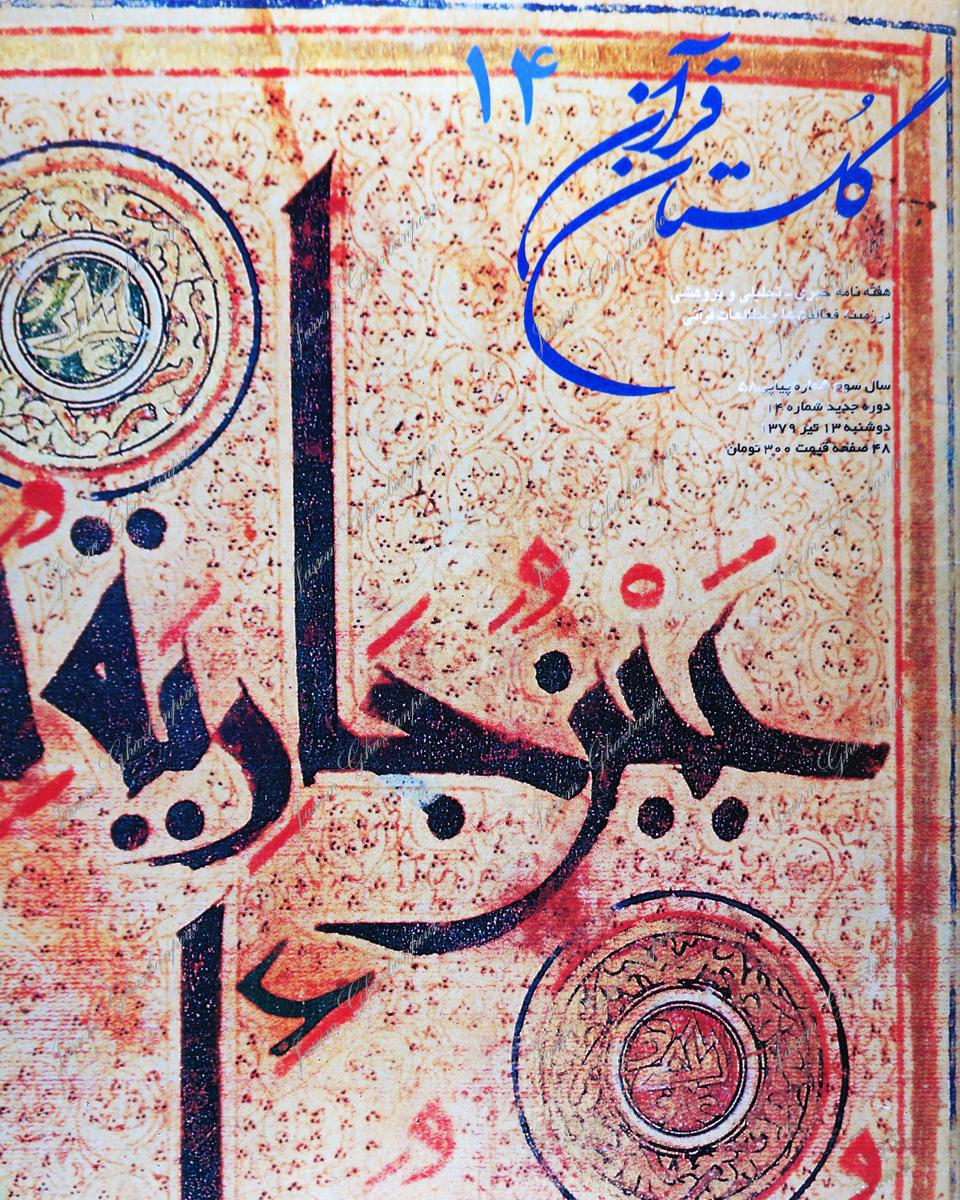 گلستان قرآن
۱۴
هفته نامه خبری - تحلیلی و پژوهشی
در زمینه فعالیت‌ها و مطالعات قرآنی
سال سوم شماره پیاپی ۵۸
دوره جدید شماره ۱۴
دوشنبه ۱۳ تیر ۱۳۷۹
۴۸ صفحه قیمت ۳۰۰ تومان
عَيْنٌ جَارِيَةٌ